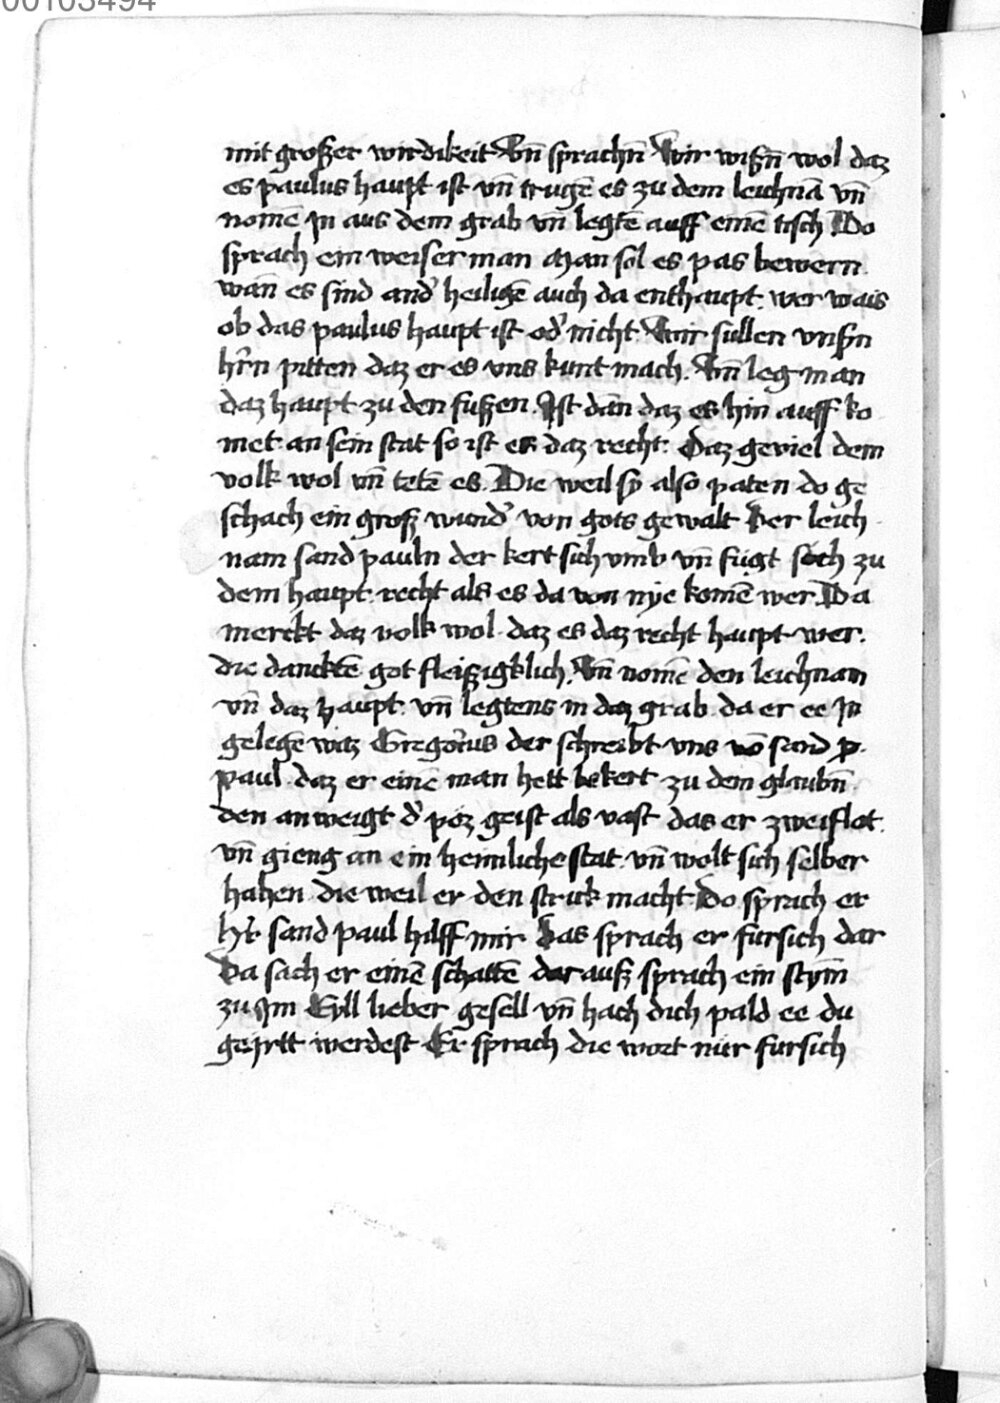 00103494
mit großer wirdikeit Vn̄ sprachn̄ Wir wißn̄ wol daz
es paulus haupt ist vn̄ trugē es zu dem leichnā vn̄
nomē jn aus dem grab vn̄ legtē auff einē tisch Do
sprach ein weiser man Man sol es pas bewern
wān es sind and' heiligē auch da enthaupt. wer wais
ob das paulus haupt ist od' nicht. Wir sullen vnsn̄
hr̄n pitten daz er es vns kunt mach. Vn̄ leg man
daz haupt zu den fußen. Ist dān daz es hin auff ko
met an sein stat so ist es daz recht. Daz geviel dem
volk wol vn̄ tetē es. Die weil sy also paten do ge
schach ein groß wund' von gots gewalt Der leich
nam sand pauln der kert sich vmb vn̄ fügt sich zu
dem haupt recht als es da von nye komē wer. Da
merckt daz volk wol daz es daz recht haupt wer.
die dancktē got fleißigklich. Vn̄ nomē den leichnam
vn̄ daz haupt. vn̄ legtens in daz grab da er ee jn
gelegē waz Gregorius der schreibt vns vō sand p.
paul daz er einē man hett bekert zu dem glaubn̄
den anweigt d' poz geist als vast das er zweiflot.
vn̄ gieng an ein heimliche stat vn̄ wolt sich selber
hahen die weil er den strick macht Do sprach er
h'r sand paul hilff mir Das sprach er fursich dar
Da sach er einē schattē dar auß sprach ein stym̄
zu jm Eyll lieber gesell vn̄ hach dich pald ee du
gejrtt werdest Er sprach die wort nür fursich